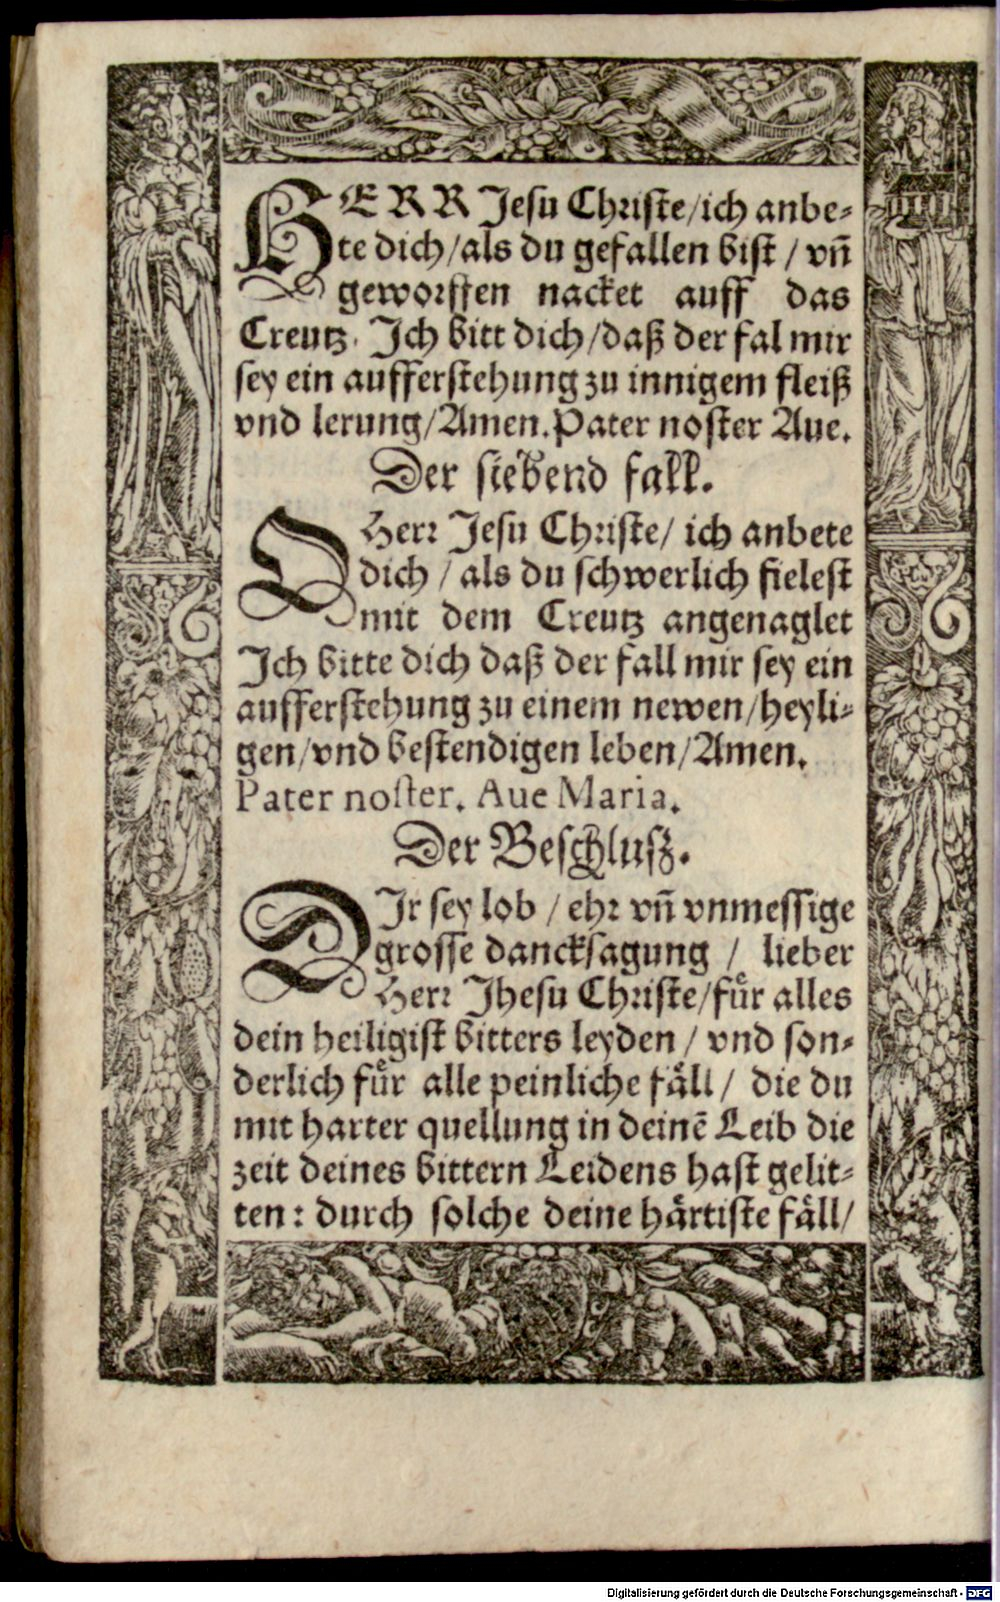 HERR Jesu Christe/ich anbe-
te dich/als du gefallen bist / vñ
geworffen nacket auff das
Creutz. Ich bitt dich/daß der fal mir
sey ein aufferstehung zu innigem fleiß
vnd lerung/Amen. Pater noster Aue.
Der siebend fall.
O Herr Jesu Christe/ ich anbete
dich / als du schwerlich fielest
mit dem Creutz angenaglet
Ich bitte dich daß der fall mir sey ein
aufferstehung zu einem newen/heyli-
gen/vnd bestendigen leben/Amen.
Pater noster. Aue Maria.
Der Beschlusz.
DIr sey lob / ehr vñ vnmessige
grosse dancksagung / lieber
Herr Jhesu Christe/fuͤr alles
dein heiligist bitters leyden / vnd son-
derlich fuͤr alle peinliche faͤll/ die du
mit harter quellung in deinẽ Leib die
zeit deines bittern Leidens hast gelit-
ten: durch solche deine haͤrtiste faͤll/
Digitalisierung gefördert durch die Deutsche Forschungsgemeinschaft - DFG